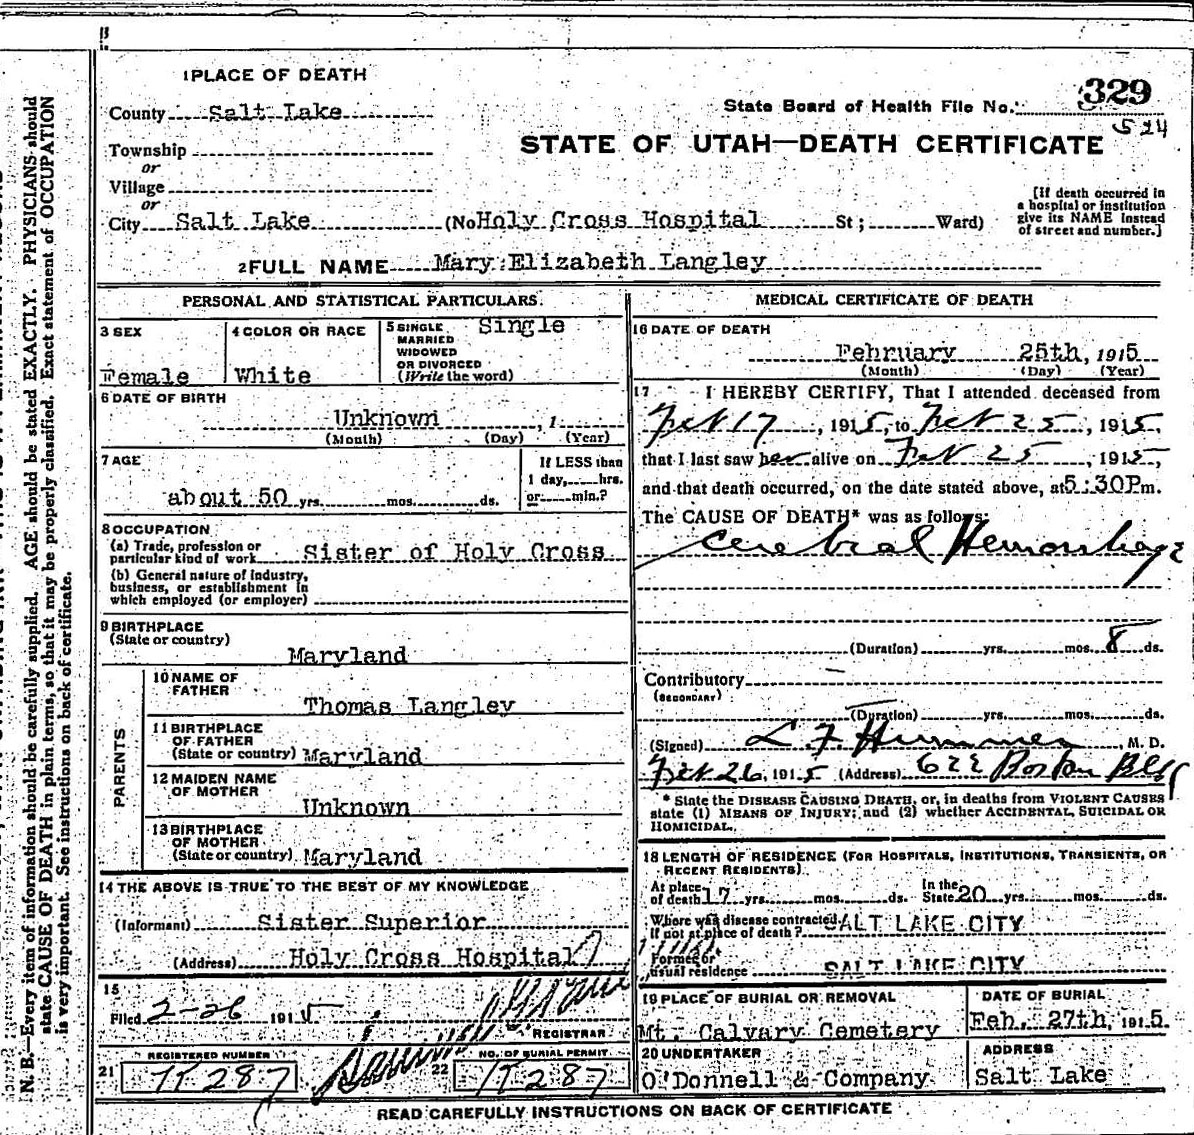 N. B.—Every item of information should be carefully supplied. AGE should be stated EXACTLY. PHYSICIANS should
state CAUSE OF DEATH in plain terms, so that it may be properly classified. Exact statement of OCCUPATION
is very important. See instructions on back of certificate.
1 PLACE OF DEATH
County Salt Lake
Township
or
Village
or
City Salt Lake (No Holy Cross Hospital St; Ward)
State Board of Health File No. 329
524
STATE OF UTAH—DEATH CERTIFICATE
[If death occurred in
a hospital or institution
give its NAME instead
of street and number.]
2 FULL NAME Mary Elizabeth Langley
PERSONAL AND STATISTICAL PARTICULARS.
3 SEX
Female
4 COLOR OR RACE
White
5 SINGLE
MARRIED
WIDOWED
OR DIVORCED
(Write the word)
Single
6 DATE OF BIRTH
Unknown , 1
(Month) (Day) (Year)
7 AGE
about 50 yrs. mos. ds.
If LESS than
1 day, hrs.
or min.?
8 OCCUPATION
(a) Trade, profession or
particular kind of work Sister of Holy Cross
(b) General nature of industry,
business, or establishment in
which employed (or employer)
9 BIRTHPLACE
(State or country)
Maryland
PARENTS
10 NAME OF
FATHER
Thomas Langley
11 BIRTHPLACE
OF FATHER
(State or country) Maryland
12 MAIDEN NAME
OF MOTHER
Unknown
13 BIRTHPLACE
OF MOTHER
(State or country) Maryland
14 THE ABOVE IS TRUE TO THE BEST OF MY KNOWLEDGE
(Informant) Sister Superior
(Address) Holy Cross Hospital
15
Filed 2-26 1915
REGISTRAR
REGISTERED NUMBER
21 17287
NO. OF BURIAL PERMIT
22 17287
MEDICAL CERTIFICATE OF DEATH
16 DATE OF DEATH
February 25th, 1915
(Month) (Day) (Year)
17 I HEREBY CERTIFY, That I attended deceased from
Feb 17, 1915, to Feb 25, 1915,
that I last saw her alive on Feb 25, 1915,
and that death occurred, on the date stated above, at 5:30P m.
The CAUSE OF DEATH* was as follows:
Cerebral Hemorrhage
(Duration) yrs. mos. 8 ds.
Contributory —
(SECONDARY)
(Duration) yrs. mos. ds.
(Signed) L. F. Hummer, M. D.
Feb 26, 1915 (Address) 622 Boston Bldg
* State the DISEASE CAUSING DEATH, or, in deaths from VIOLENT CAUSES
state (1) MEANS OF INJURY; and (2) whether ACCIDENTAL, SUICIDAL OR
HOMICIDAL.
18 LENGTH OF RESIDENCE (FOR HOSPITALS, INSTITUTIONS, TRANSIENTS, OR
RECENT RESIDENTS)
At place
of death 17 yrs. mos. ds. In the
State 20 yrs. mos. ds.
Where was disease contracted
If not at place of death? SALT LAKE CITY
Former or
usual residence SALT LAKE CITY
19 PLACE OF BURIAL OR REMOVAL
Mt. Calvary Cemetery
DATE OF BURIAL
Feb. 27th, 1915.
20 UNDERTAKER
O'Donnell & Company
ADDRESS
Salt Lake
READ CAREFULLY INSTRUCTIONS ON BACK OF CERTIFICATE